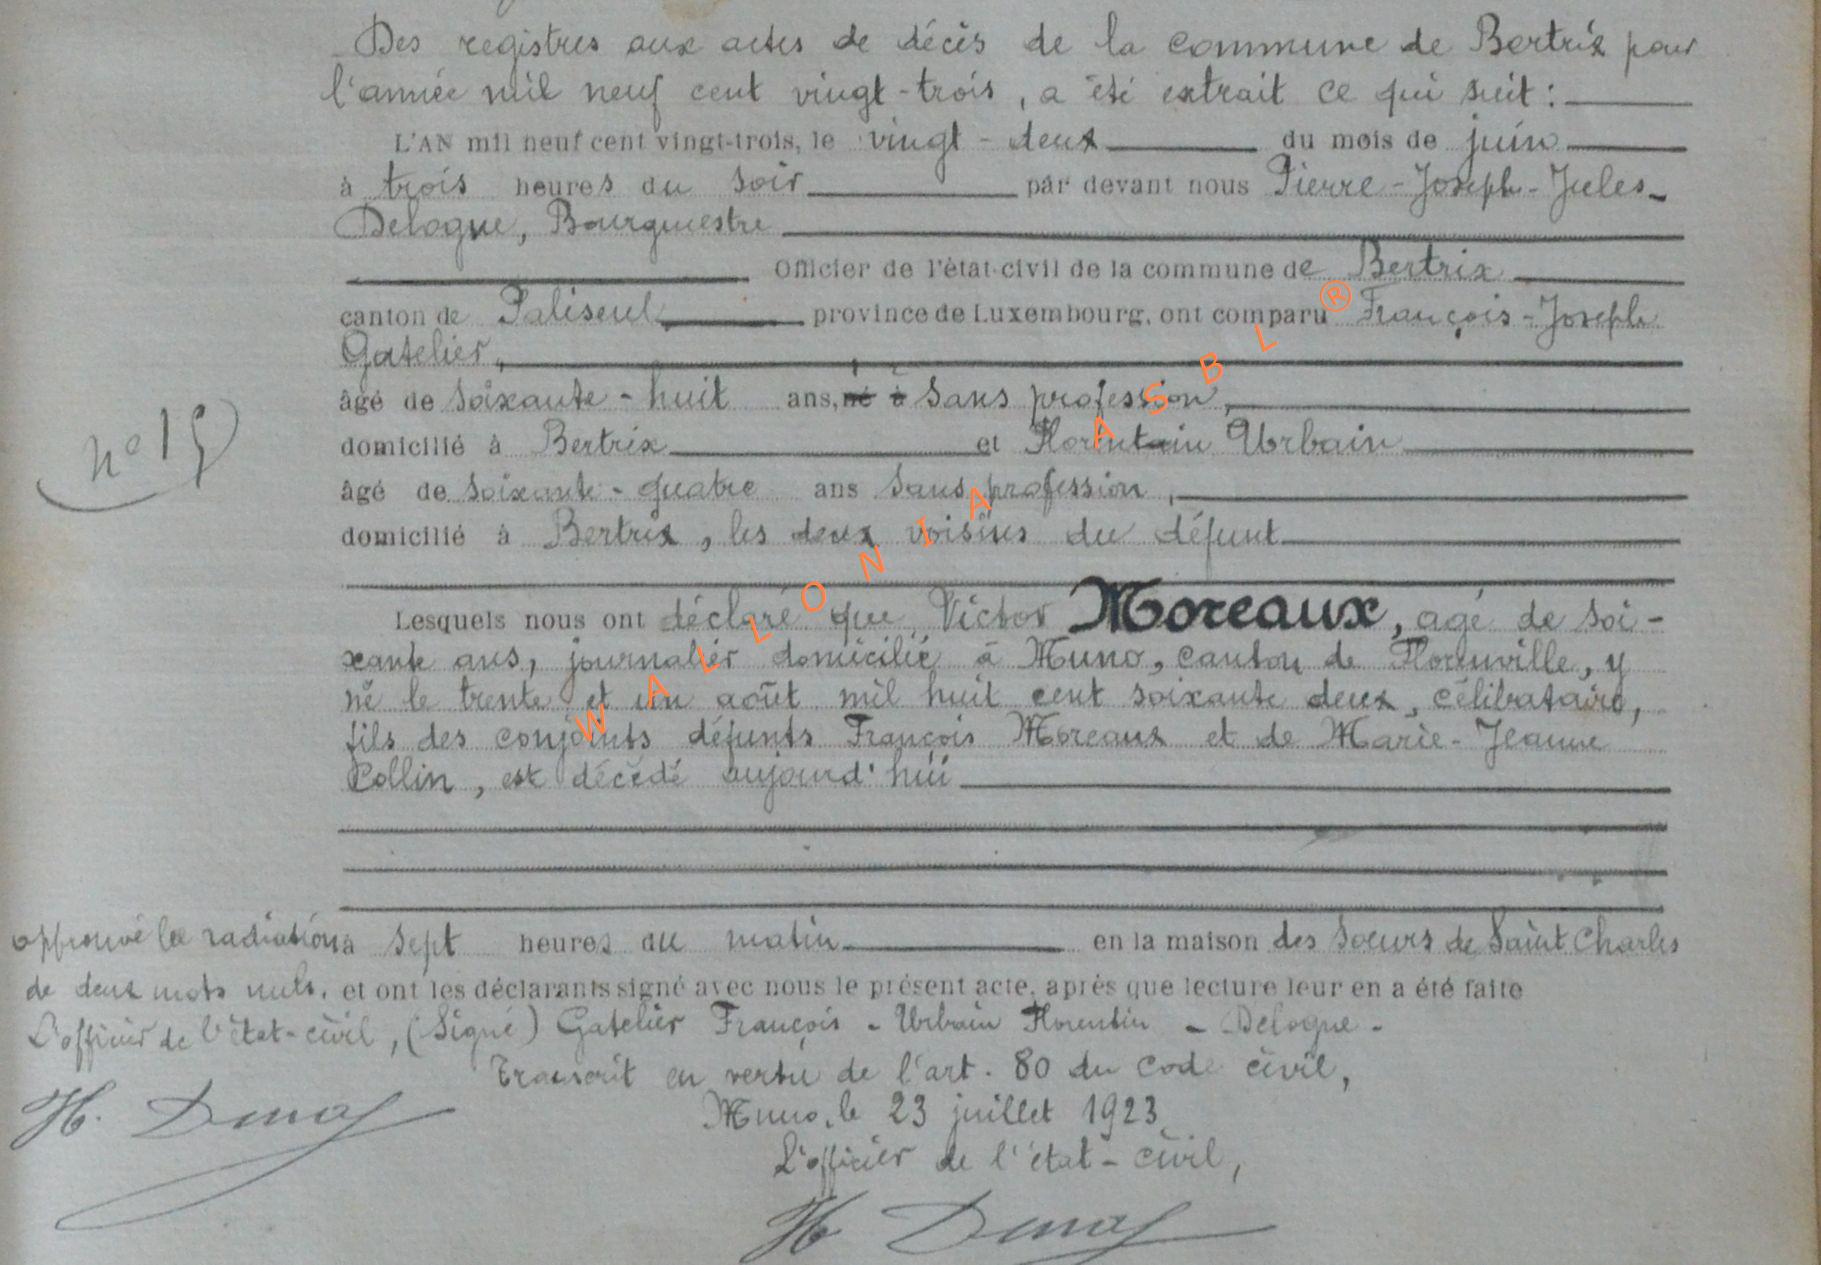 Des registres aux actes de décès de la commune de Bertrix pour
l'année mil neuf cent vingt-trois, a été extrait ce qui suit :
L'AN mil neuf cent vingt-trois, le vingt-deux du mois de juin
à trois heures du soir par devant nous Pierre-Joseph-Jules-
Delogne, Bourgmestre
Officier de l'état-civil de la commune de Bertrix
canton de Paliseul province de Luxembourg, ont comparu François-Joseph
Gatelier,
âgé de soixante-huit ans, né à sans profession,
n° 15
domicilié à Bertrix et Florentin Urbain
âgé de soixante-quatre ans sans profession,
domicilié à Bertrix, les deux voisins du défunt
Lesquels nous ont déclaré que Victor Moreaux, agé de soi-
xante ans, journalier domicilié à Muno, canton de Florenville, y
né le trente et un août mil huit cent soixante deux, célibataire,
fils des conjoints défunts François Moreaux et de Marie-Jeanne
Collin, est décédé aujourd'hui
à sept heures du matin en la maison des Soeurs de Saint Charles
et ont les déclarants signé avec nous le présent acte, après que lecture leur en a été faite
approuvé la radiation
de deux mots nuls.
L'officier de l'état-civil, (Signé) Gatelier François - Urbain Florentin - Delogne -
Transcrit en vertu de l'art. 80 du code civil,
Muno, le 23 juillet 1923
L'officier de l'état-civil,
WALLONIA ASBL ®